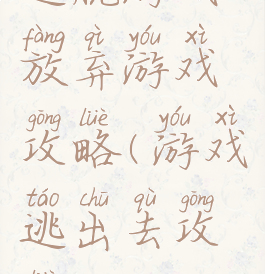 fàng qì yóu xì
放弃游戏
gōng lüè yóu xì
攻略(游戏
táo chū qù gōng
逃出去攻